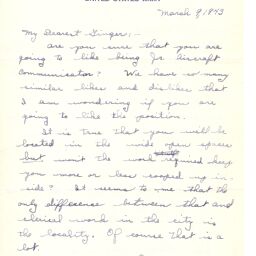 UNITED STATES ARMY
March 9, 1943
My Dearest Ginger; -
Are you sure that you are
going to like being Jr. Aircraft
Communicator? We have so many
similar likes and dislikes that
I am wondering if you are
going to like the position.
It is true that you will be
located in the wide open spaces
but won't the work required keep
you more or less cooped up in-
side? It seems to me that the
only difference between that and
clerical work in the city is
the locality. Of course that is a
lot.